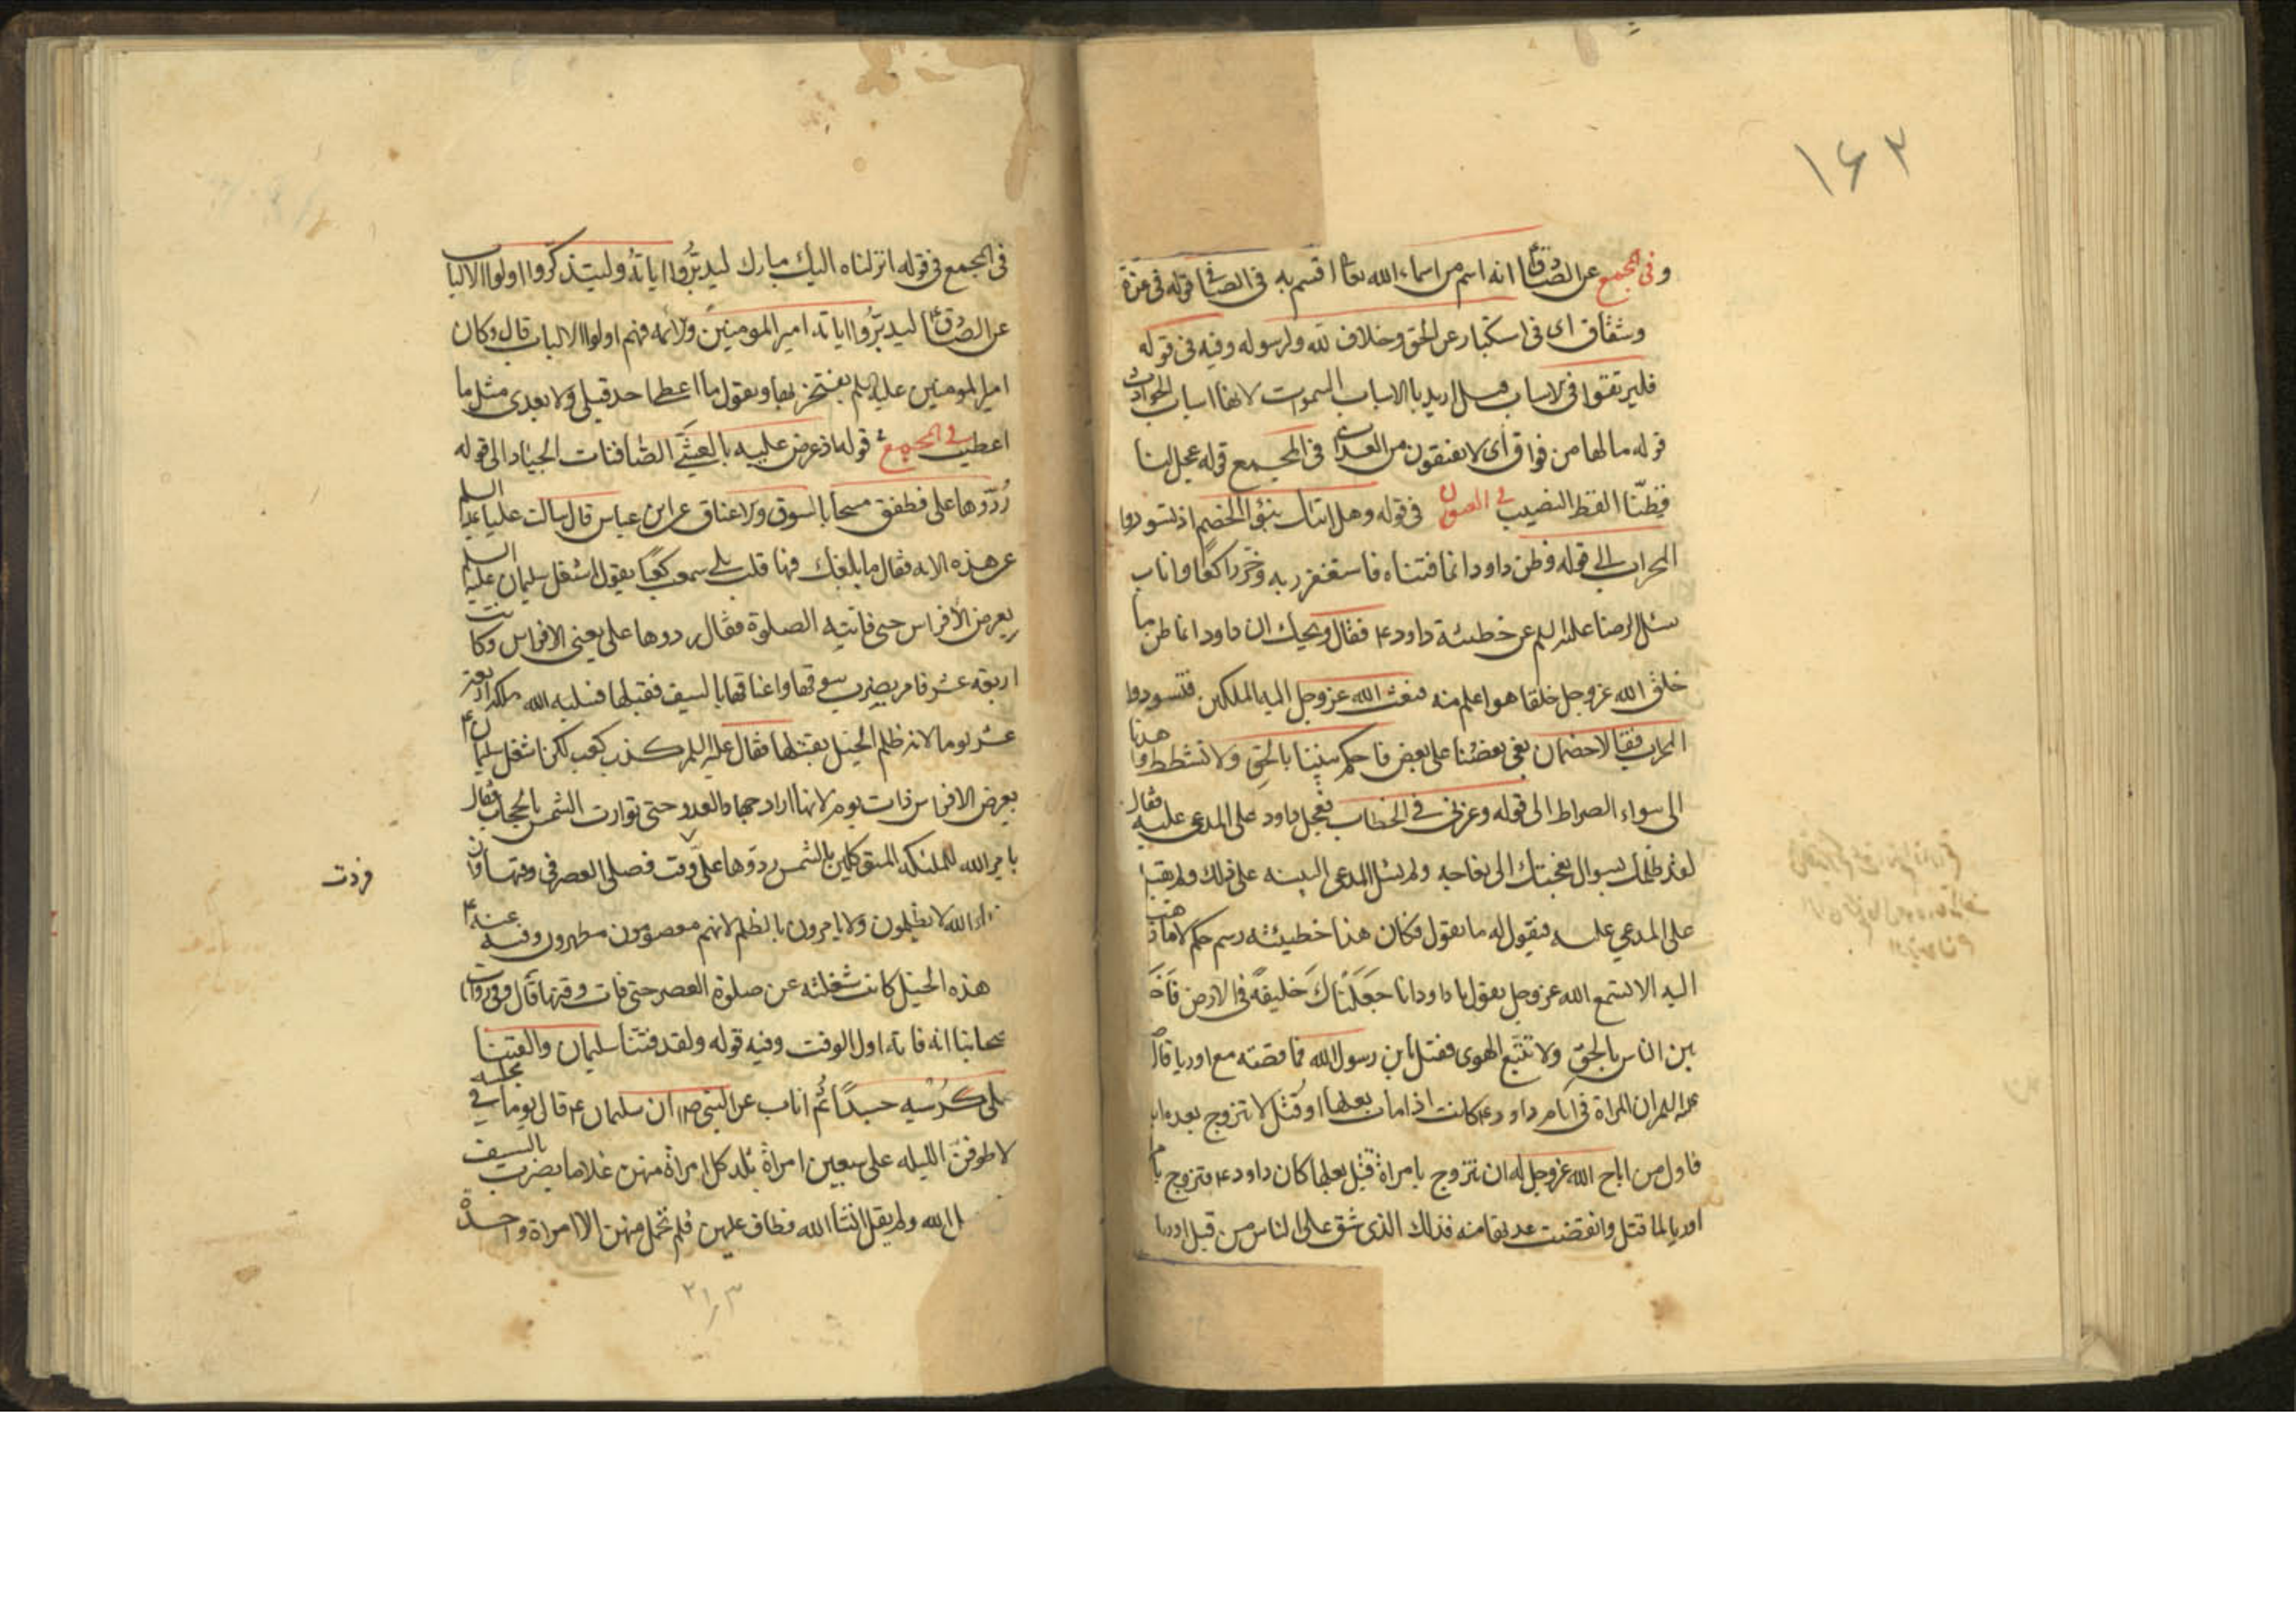 ١٦٢
وفى المجمع عن الصادق ع انه اسم من اسماء الله تعا اقسم به فى الصافى قوله فى عزة
وشقاق اى فى استكبار عن الحق وخلاف لله ولرسوله وفيه فى قوله
فليرتقوا فى الاسباب قيل اريد بالاسباب السموات لانها اسباب الحوادث
قوله مالها من فواق اى لا يفيقون من العذاب فى المجمع قوله عجل لنا
قطنا القط النصيب فى العيون فى قوله وهل اتاك نبؤا الخصم اذ تسوروا
المحراب الى قوله وظن داود انما فتناه فاستغفر ربه وخر راكعا واناب
سئل الرضا عليه السلم عن خطيئة داود ع فقال ويحك ان داود انما ظن ما
خلق الله عز وجل خلقا هو اعلم منه فبعث الله عز وجل اليه الملكين فتسوروا
المحراب فقالا خصمان بغى بعضنا على بعض فاحكم بيننا بالحق ولا تشطط واهدنا
الى سواء الصراط الى قوله وعزنى فى الخطاب فعجل داود على المدعى عليه فقال
لقد ظلمك بسوال نعجتك الى نعاجه ولم يسئل المدعى البينه على ذلك ولم يقبل
على المدعي عليه فيقول له ما تقول فكان هذا خطيئته رسم حكم لا ما ذهبت
اليه الا تستمع الله عز وجل يقول يا داود انا جعلناك خليفة فى الارض فاحكم
بين الناس بالحق ولا تتبع الهوى فقيل يابن رسول الله فما قصته مع اوريا قال
عليه السلم ان المراة فى ايام داود ع كانت اذا مات بعلها او قتل لا تتزوج بعده ابدا
فاول من اباح الله عز وجل له ان تتزوج بامراة قتل بعلها كان داود ع فتزوج بام
اوريا لما قتل وانقضت عدتها منه فذلك الذى شق على الناس من قبل اوريا
فى المجمع فى قوله انزلناه اليك مبارك ليدبروا اياته وليتذكروا اولوا الالباب
عن الصادق ع ليدبروا اياته امير المومنين والائمه فهم اولوا الالباب قال وكان
امير المومنين عليه السلم يفتخر بها ويقول ما اعطى احد قبلى ولا بعدى مثل ما
اعطيت فى المجمع فى قوله اذ عرض عليه بالعشي الصافنات الجياد الى قوله
ردوها على فطفق مسحا بالسوق والاعناق عن ابن عباس قال سالت عليا عليه السلم
عن هذه الايه فقال ما بلغك فيها قلت بلى سمعت كعبا يقول اشتغل سليمان عليه السلم
بعرض الافراس حتى فاتته الصلوة فقال ردوها على يعنى الافراس وكانت
اربعة عشر فامر بضرب سوقها واعناقها بالسيف فقتلها فسلبه الله ملكه اربعة
عشر يوما لانه ظلم الخيل بقتلها فقال عليه السلم كذب كعب لكن اشتغل سليمان ع
بعرض الافراس ذات يوم لانه اراد جهاد العدو حتى توارت الشمس بالحجاب فقال
بامر الله للملئكه الموكلين بالشمس ردوها على وقت فصلى العصر فى وقتها وان
فردت
انبياء الله لا يظلمون ولا يامرون بالظلم لانهم معصومون مطهرون وفيه عنه ع
هذه الخيل كانت شغلته عن صلوة العصر حتى فات وقتها قال وفى روايات
اصحابنا انه فاته اول الوقت وفيه قوله ولقد فتنا سليمان والقينا
على كرسيه جسدا ثم اناب عن النبى ص ان سليمان ع قال يوما في مجلسه
لاطوفن الليله على سبعين امراة تلد كل امراة منهن غلاما يضرب بالسيف
فى سبيل الله ولم يقل انشا الله فطاف عليهن فلم تحمل منهن الا امراة واحدة
٢١٣